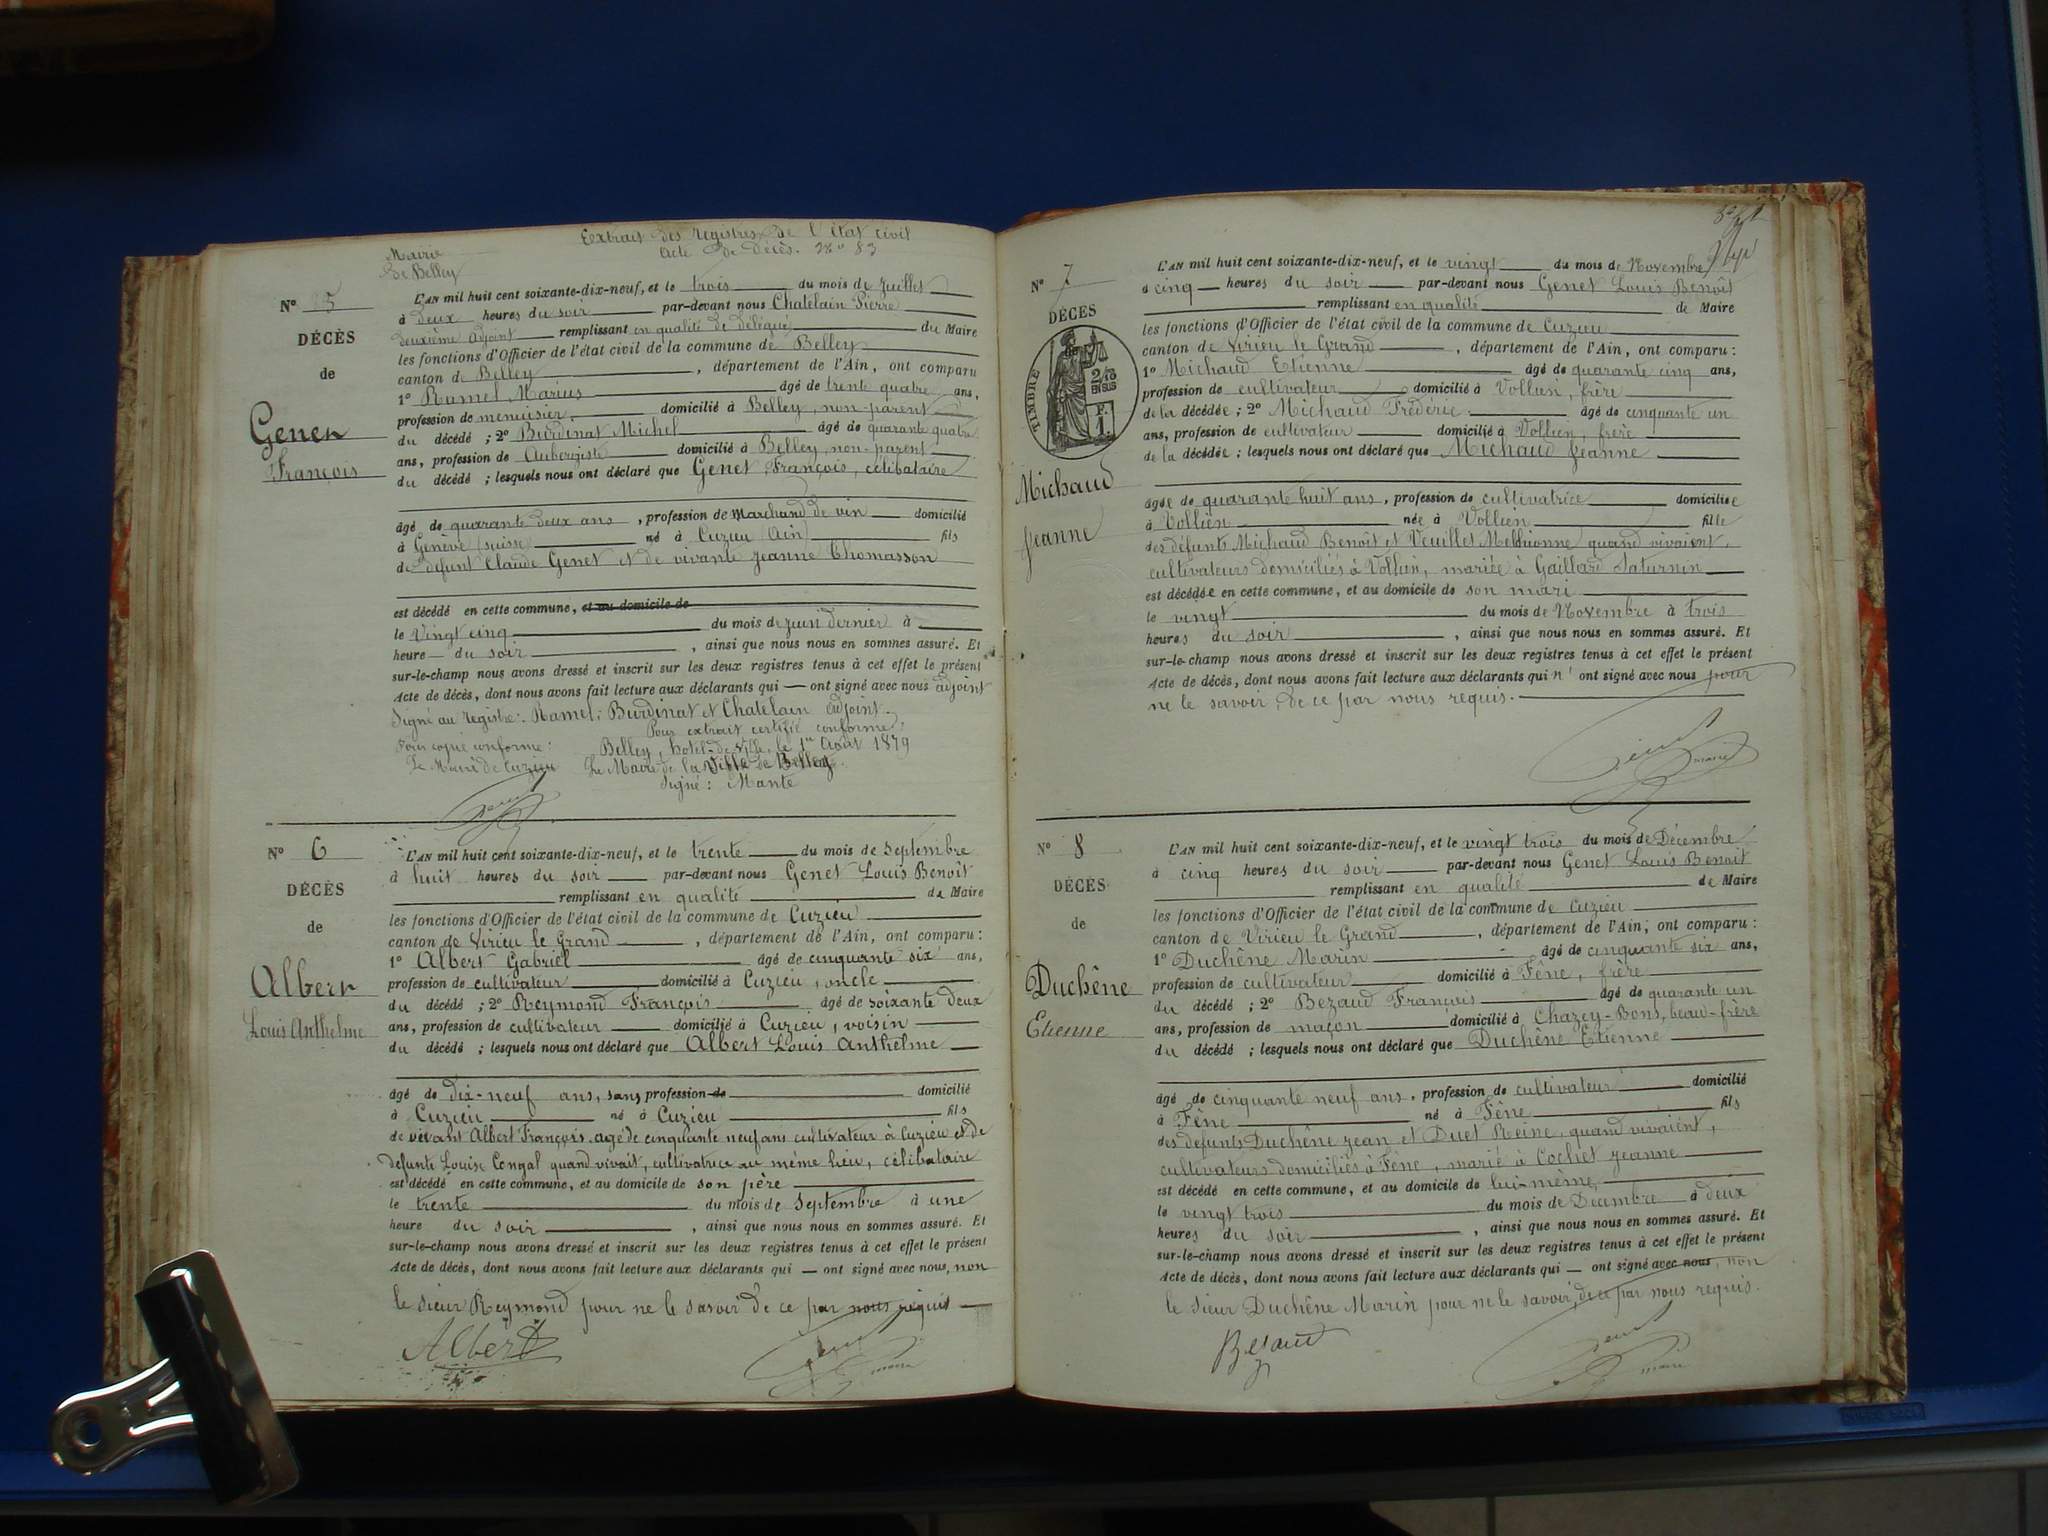 Extrait des registres de l'état civil
Mairie
de Belley
Acte de Décès. N° 83
N° 5
DÉCÈS
de
Genet
François
L'AN mil huit cent soixante-dix-neuf, et le trois du mois de Juillet
à deux heures du soir par-devant nous Chatelain Pierre
deuxième Adjoint remplissant en qualité de délégué du Maire
les fonctions d'Officier de l'état civil de la commune de Belley
canton de Belley, département de l'Ain, ont comparu
1° Ramel Marius âgé de trente quatre ans,
profession de menuisier domicilié à Belley, non-parent
du décédé ; 2° Burdinat Michel âgé de quarante quatre
ans, profession de Aubergiste domicilié à Belley, non-parent
du décédé ; lesquels nous ont déclaré que Genet François, célibataire
âgé de quarante deux ans, profession de Marchand de vin domicilié
à Genève (suisse) né à Cuzieu (Ain) fils
de défunt Claude Genet et de vivante Jeanne Thomasson
est décédé en cette commune, et au domicile de
le Vingt cinq du mois de Juin dernier à
heure du soir, ainsi que nous nous en sommes assuré. Et
sur-le-champ nous avons dressé et inscrit sur les deux registres tenus à cet effet le présent
Acte de décès, dont nous avons fait lecture aux déclarants qui — ont signé avec nous adjoint
Signé au registre: Ramel, Burdinat et Chatelain adjoint.
Pour extrait certifié conforme:
Pour copie conforme: Belley, hotel-de-Ville, le 1er Août 1879
Le Maire de Cuzieu Le Maire de la Ville de Belley.
Signé: Mante
Genet
N° 6
DÉCÈS
de
Albert
Louis Anthelme
L'AN mil huit cent soixante-dix-neuf, et le trente du mois de Septembre
à huit heures du soir par-devant nous Genet Louis Benoit
remplissant en qualité de Maire
les fonctions d'Officier de l'état civil de la commune de Cuzieu
canton de Virieu le Grand, département de l'Ain, ont comparu :
1° Albert Gabriel âgé de cinquante six ans,
profession de cultivateur domicilié à Cuzieu, oncle
du décédé ; 2° Reymond François âgé de soixante deux
ans, profession de cultivateur domicilié à Cuzieu, voisin
du décédé ; lesquels nous ont déclaré que Albert Louis Anthelme
âgé de dix-neuf ans, sans profession de domicilié
à Cuzieu né à Cuzieu fils
de vivant Albert François, agé de cinquante neuf ans cultivateur à Cuzieu et de
defunte Louise Congal quand vivait, cultivatrice au même lieu, célibataire
est décédé en cette commune, et au domicile de son père
le trente du mois de Septembre à une
heure du soir, ainsi que nous nous en sommes assuré. Et
sur-le-champ nous avons dressé et inscrit sur les deux registres tenus à cet effet le présent
Acte de décès, dont nous avons fait lecture aux déclarants qui — ont signé avec nous, non
le sieur Reymond pour ne le savoir de ce par nous requis
Albert
Genet maire
N° 7
DÉCÈS
de
TIMBRE
2/10
EN SUS
F.
1.
Michaud
Jeanne
L'AN mil huit cent soixante-dix-neuf, et le vingt du mois de Novembre
à cinq heures du soir par-devant nous Genet Louis Benoit
remplissant en qualité de Maire
les fonctions d'Officier de l'état civil de la commune de Cuzieu
canton de Virieu le Grand, département de l'Ain, ont comparu :
1° Michaud Etienne âgé de quarante cinq ans,
profession de cultivateur domicilié à Vollien, frère
de la décédée ; 2° Michaud Fréderic âgé de cinquante un
ans, profession de cultivateur domicilié à Vollien, frère
de la décédée ; lesquels nous ont déclaré que Michaud Jeanne
âgée de quarante huit ans, profession de cultivatrice domiciliée
à Vollien née à Vollien fille
des défunts Michaud Benoit et Veuillet Melhionne quand vivaient,
cultivateurs domiciliés à Vollien, mariée à Gaillard Saturnin
est décédée en cette commune, et au domicile de son mari
le vingt du mois de Novembre à trois
heures du soir, ainsi que nous nous en sommes assuré. Et
sur-le-champ nous avons dressé et inscrit sur les deux registres tenus à cet effet le présent
Acte de décès, dont nous avons fait lecture aux déclarants qui n'ont signé avec nous pour
ne le savoir, de ce par nous requis.
Genet maire
N° 8
DÉCÈS
de
Duchêne
Etienne
L'AN mil huit cent soixante-dix-neuf, et le vingt trois du mois de Décembre
à cinq heures du soir par-devant nous Genet Louis Benoit
remplissant en qualité de Maire
les fonctions d'Officier de l'état civil de la commune de Cuzieu
canton de Virieu le Grand, département de l'Ain, ont comparu :
1° Duchêne Marin âgé de cinquante six ans,
profession de cultivateur domicilié à Fêne, frère
du décédé ; 2° Bezaud François âgé de quarante un
ans, profession de maçon domicilié à Chazey-Bons, beau-frère
du décédé ; lesquels nous ont déclaré que Duchêne Etienne
âgé de cinquante neuf ans, profession de cultivateur domicilié
à Fêne né à Fêne fils
des defunts Duchêne Jean et Duet Reine, quand vivaient,
cultivateurs domiciliés à Fêne, marié à Cochet Jeanne
est décédé en cette commune, et au domicile de lui-même
le vingt trois du mois de Decembre à deux
heures du soir, ainsi que nous nous en sommes assuré. Et
sur-le-champ nous avons dressé et inscrit sur les deux registres tenus à cet effet le présent
Acte de décès, dont nous avons fait lecture aux déclarants qui — ont signé avec nous, non
le sieur Duchêne Marin pour ne le savoir, de ce par nous requis.
Bezaud
Genet maire